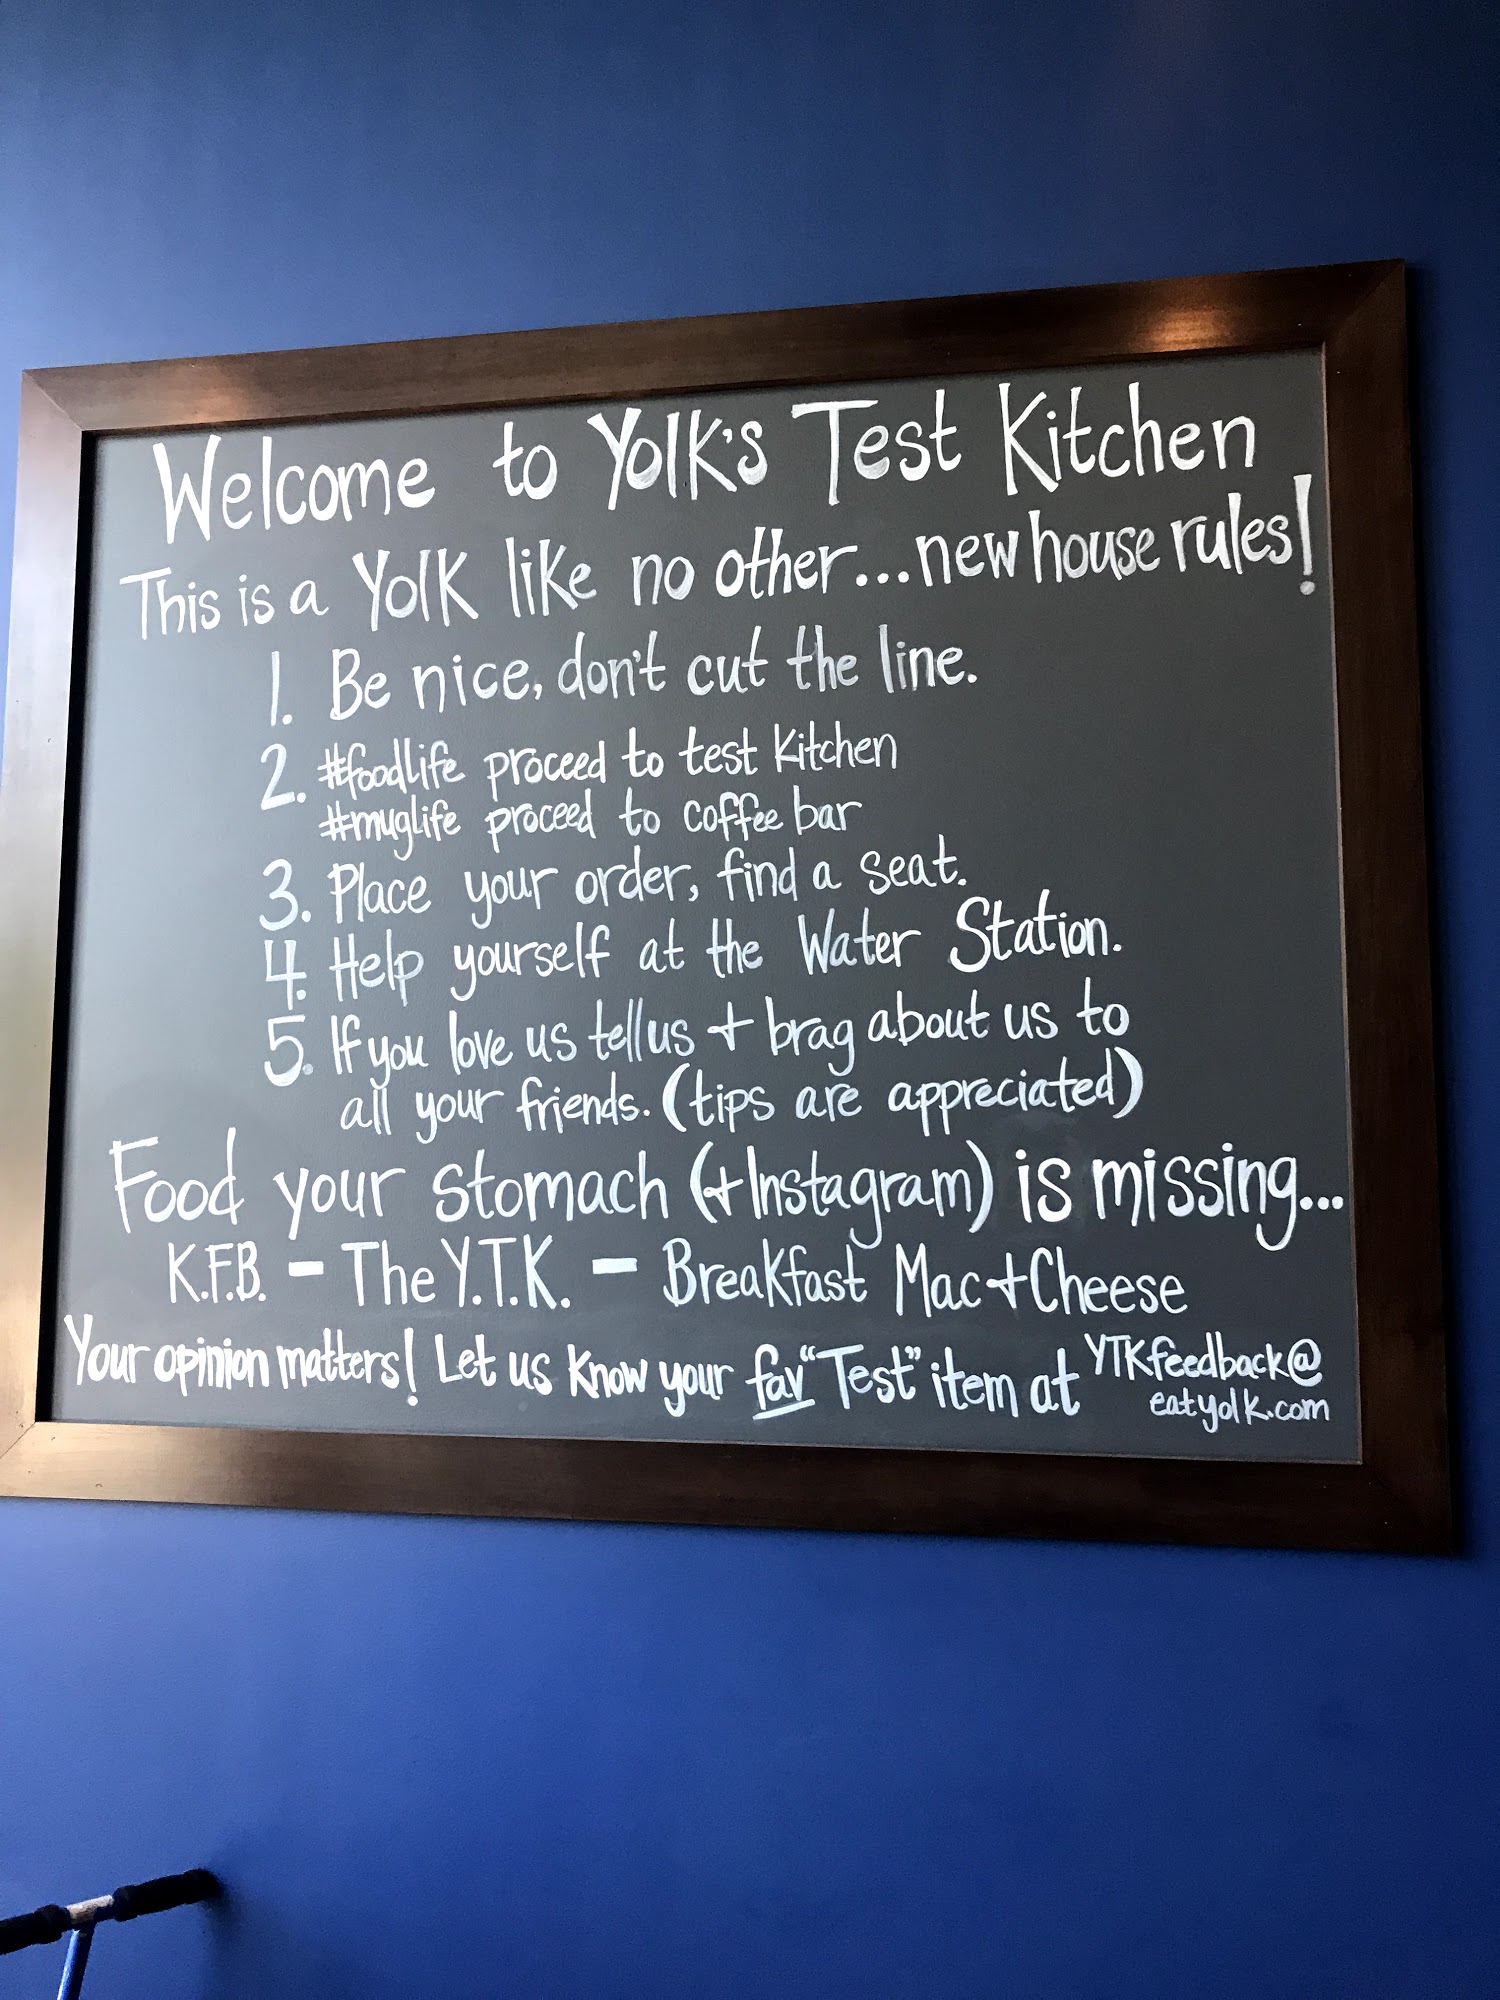 Welcome to Yolk's Test Kitchen
This is a Yolk like no other...new house rules!
1. Be nice, don't cut the line.
2. #foodlife proceed to test Kitchen
#muglife proceed to coffee bar
3. Place your order, find a seat.
4. Help yourself at the Water Station.
5. If you love us tell us + brag about us to
all your friends. (tips are appreciated)
Food your stomach (+Instagram) is missing...
K.F.B. - The Y.T.K. - Breakfast Mac+Cheese
Your opinion matters! Let us know your fav "Test" item at YTKfeedback@
eatyolk.com